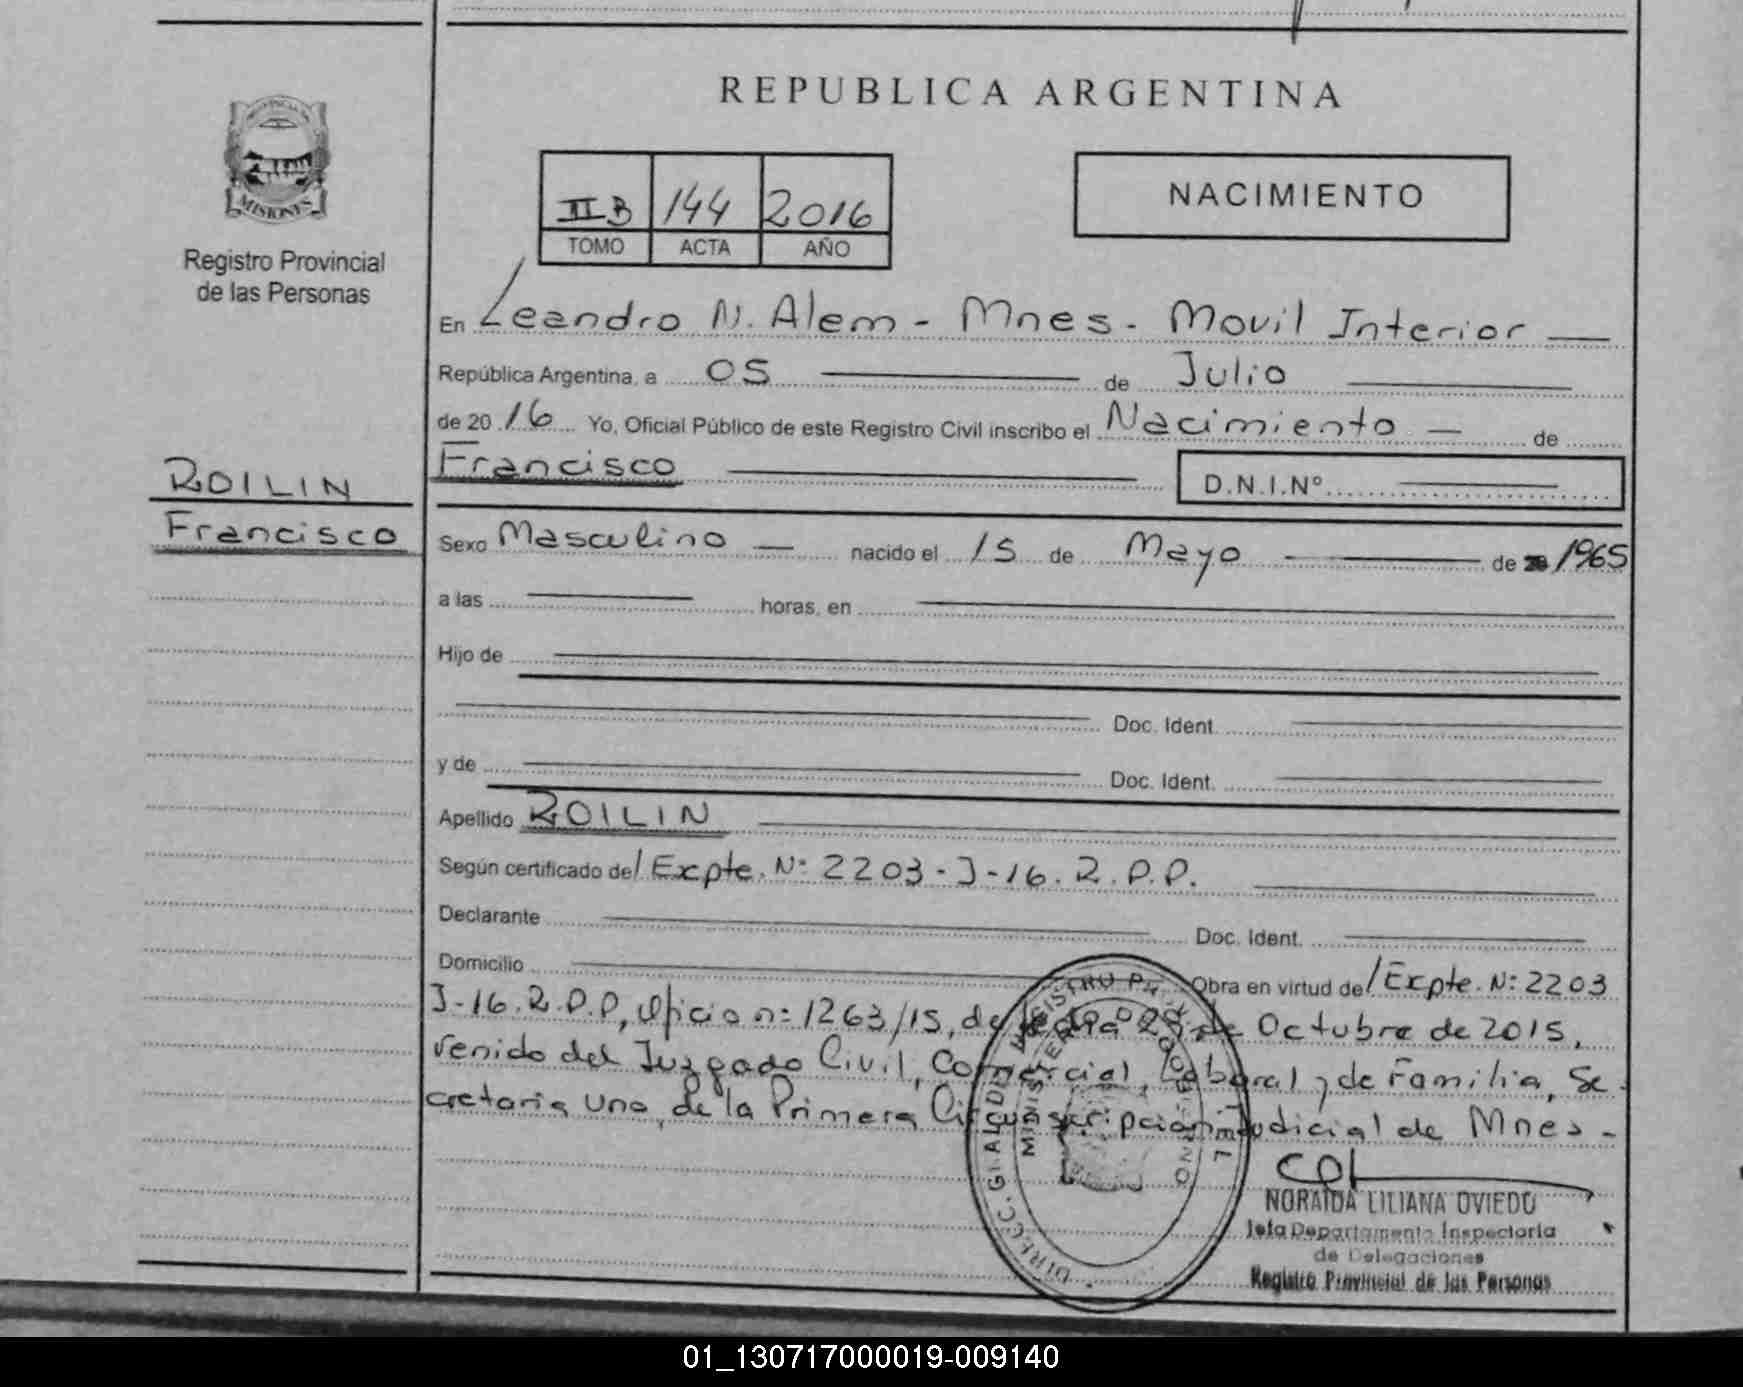 REPUBLICA ARGENTINA
MISIONES
Registro Provincial
de las Personas
II B 144 2016
TOMO ACTA AÑO
NACIMIENTO
En Leandro N. Alem - Mnes - Movil Interior
República Argentina, a 05 de Julio
de 20 16 Yo, Oficial Público de este Registro Civil inscribo el Nacimiento de
Francisco D.N.I.Nº
ROILIN
Francisco
Sexo Masculino nacido el 15 de Mayo de 1965
a las horas, en
Hijo de
Doc. Ident.
y de Doc. Ident.
Apellido ROILIN
Según certificado de/ Expte. Nº: 2203-J-16. R.P.P.
Declarante Doc. Ident.
Domicilio Obra en virtud de/ Expte. Nº: 2203
J-16.R.P.P, Oficio nº: 1263/15, de fecha de Octubre de 2015,
venido del Juzgado Civil, Comercial, Laboral y de Familia, Se-
cretaria Uno, de la Primera Circunscripción Judicial de Mnes-
NORAIDA LILIANA OVIEDO
Jefa Departamento Inspectoria
de Delegaciones
Registro Provincial de las Personas
01_130717000019-009140